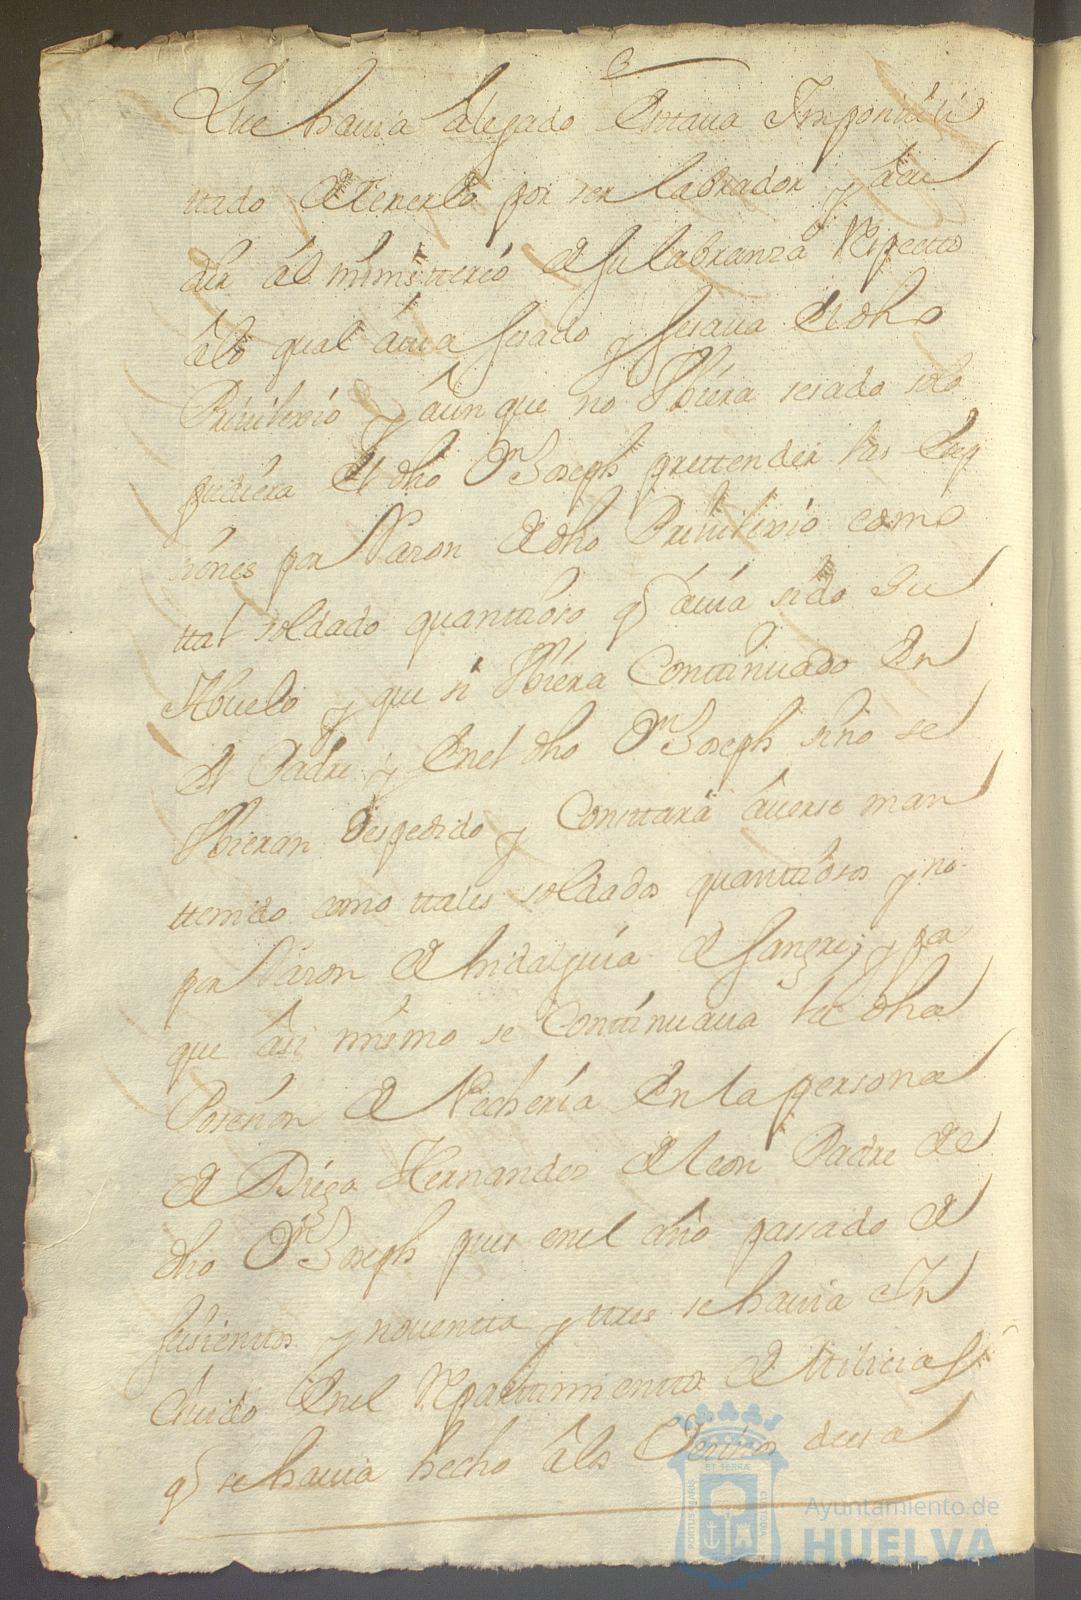 Que hauia alegado Estaua Imposiuili
ttado de tenerlo por ser labrador y acu
dir al minstterio de su labranza Respectto
a lo qual auia sesado y sesaua el dho
Priuilexio y aunque no Vbiera sesado solo
pudiera el dho Dn Joseph prettender las Exep
siones por Razon de dho Priuilexio como
ttal soldado quanttioso q auia sido su
Abuelo y que si Vbiera Conttinuado En
el Padre y En el dho Dn Joseph sino se
Vbieran despedido y Consttara auerse man
ttenido como ttales soldados quanttiosos y no
por Razon de hidalguia de sangre; y por
que asi mismo se Conttinuaua la dha
Posesion de Pecheria En la persona
de Diego Hernandes de leon Padre de
dho Dn Joseph pues en el año passado de
seisienttos y nouentta y ttres se hauia In
cluido En el Repartimientto de Milicias
q se hauia hecho a los Vesinos desa
Ayuntamiento de
HUELVA
PORTUS MARIS
ET TERRAE
CUSTODIA